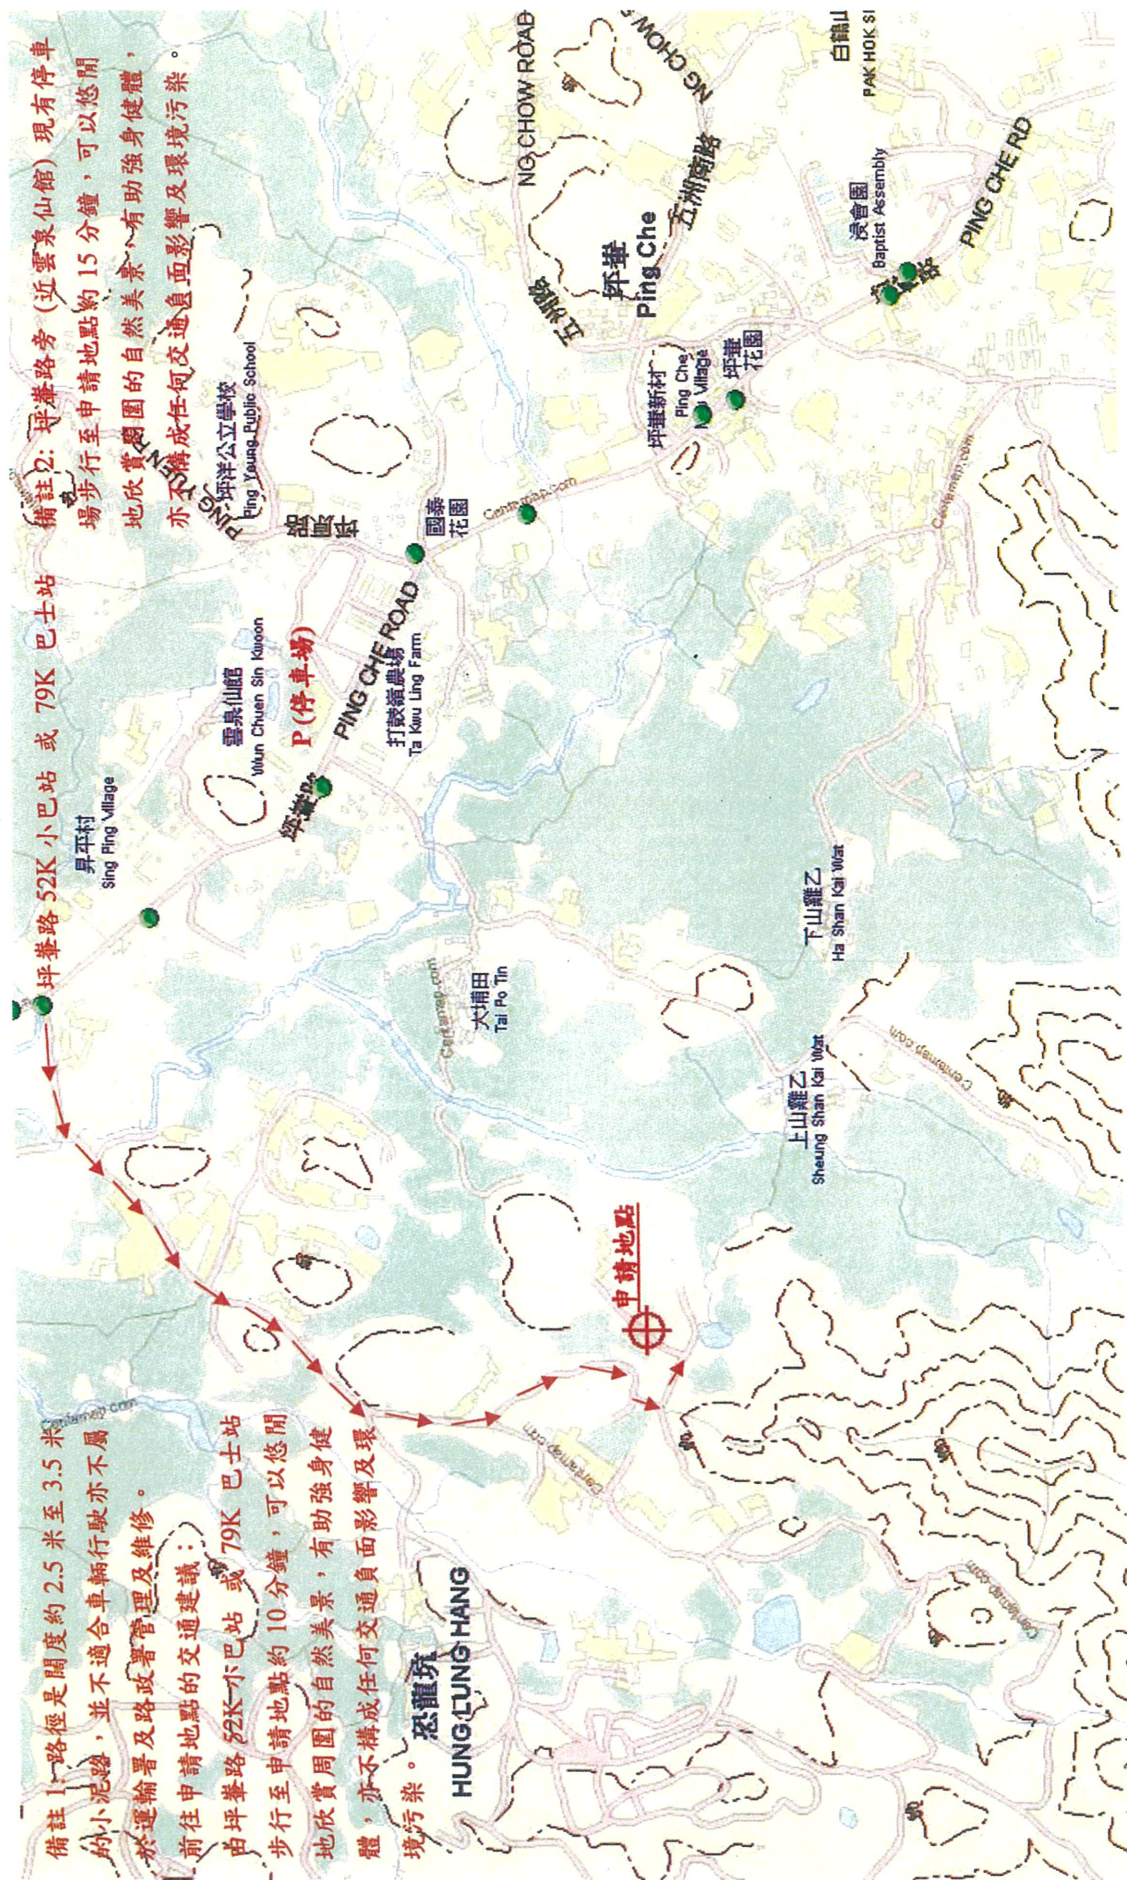 備註 1: 路徑是闊度約 2.5 米至 3.5 米
的小泥路，並不適合車輛行駛亦不屬
於運輸署及路政署管理及維修。
前往申請地點的交通建議：
由坪輋路 52K 小巴站 或 79K 巴士站
步行至申請地點約 10 分鐘，可以悠閒
地欣賞周圍的自然美景，有助強身健
體，亦不構成任何交通負面影響及環
境污染。
坪輋路 52K 小巴站 或 79K 巴士站
備註 2: 坪輋路旁 (近雲泉仙館) 現有停車
場步行至申請地點約 15 分鐘，可以悠閒
地欣賞周圍的自然美景，有助強身健體，
亦不構成任何交通負面影響及環境污染。
昇平村
Sing Ping Village
雲泉仙館
Wun Chuen Sin Kwoon
P (停車場)
坪輋路
PING CHE ROAD
打鼓嶺農場
Ta Kwu Ling Farm
坪洋公立學校
Ping Yeung Public School
PING YUEN
國泰
花園
Centamap.com
NG CHOW ROAD
五洲路
坪輋
Ping Che
五洲南路
NG CHOW
白鶴山
PAK HOK
坪輋新村
Ping Che
Village
坪輋
花園
浸會園
Baptist Assembly
PING CHE RD
Centamap.com
大埔田
Tai Po Tin
Centamap.com
下山雞乙
Ha Shan Kai Wat
上山雞乙
Sheung Shan Kai Wat
Centamap.com
申請地點
Centamap.com
Centamap.com
恐龍坑
HUNG LUNG HANG
Centamap.com